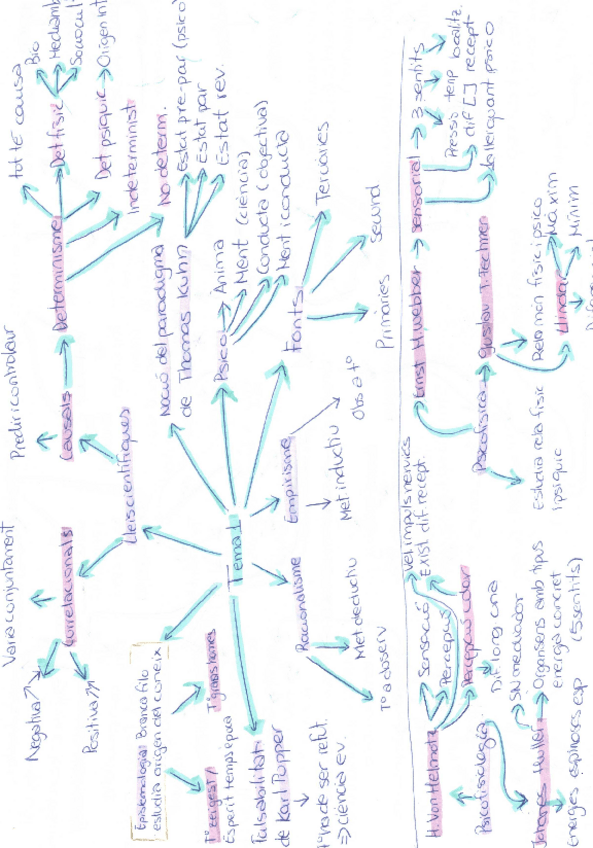 Tema 1
Epistemologia: Branca filo
estudia origen del coneix
Tº zeigest /
Esperit temps, època
Tº grans homes
Falsabilitat
de Karl Popper
tº ha de ser refut.
=> ciència ev.
Racionalisme
Met deductiu
Tº a observ
Empirisme
Met inductiu
Obs a tº
Lleis científiques
Correlacionals
Varia conjuntament
Negativa
Positiva
Causals
Predir i controlar
Determinisme
tot té causa
Det físic
Bio
Mediamb
Sociocul
Det psíquic → Origen int
Indeterminist
No determ.
Noció del paradigma
de Thomas Kuhn
Estat pre-par (psico)
Estat par
Estat rev.
Psico
Anima
Ment (ciència)
Conducta (objectiva)
Ment i conducta
Fonts
Terciàries
Secund
Primàries
H. Von Helmotz
Sensació
Percepció
Percepció color
Vel impuls nerviós
Exist dif. recept.
Dif long ona
Psicofisiologia
Johanes Müller
SN mediador
Organ sens amb tipus
energia concret
Energies específiques esp (5 sentits)
Psicofísica
Estudia rela físic
i psíquic
Ernst H Webber
Sensorial → 3 sentits
Pressió temp localitz.
dif [] recept
Llindar quant psico
Gustav T. Fechner
Relació món físic i psico
Llindar
Màxim
Mínim